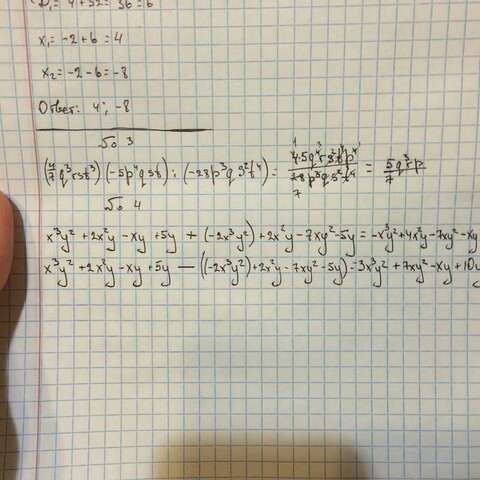 D₁ = 4+32 = 36 = 6
x₁ = -2+6 = 4
x₂ = -2-6 = -8
Ответ: 4; -8
№ 3
(4/7 q³rst³)(-5p⁴qst) : (-28p³qs²t⁴) = 4·5q⁴rs²t⁴p⁴ / 28p³qs²t⁴ = 5q³rp / 7
№ 4
x³y² + 2x²y - xy + 5y + (-2x³y²) + 2x²y - 7xy² - 5y = -x³y² + 4x²y - 7xy² - xy
x³y² + 2x²y - xy + 5y - ((-2x³y²) + 2x²y - 7xy² - 5y) = 3x³y² + 7xy² - xy + 10y